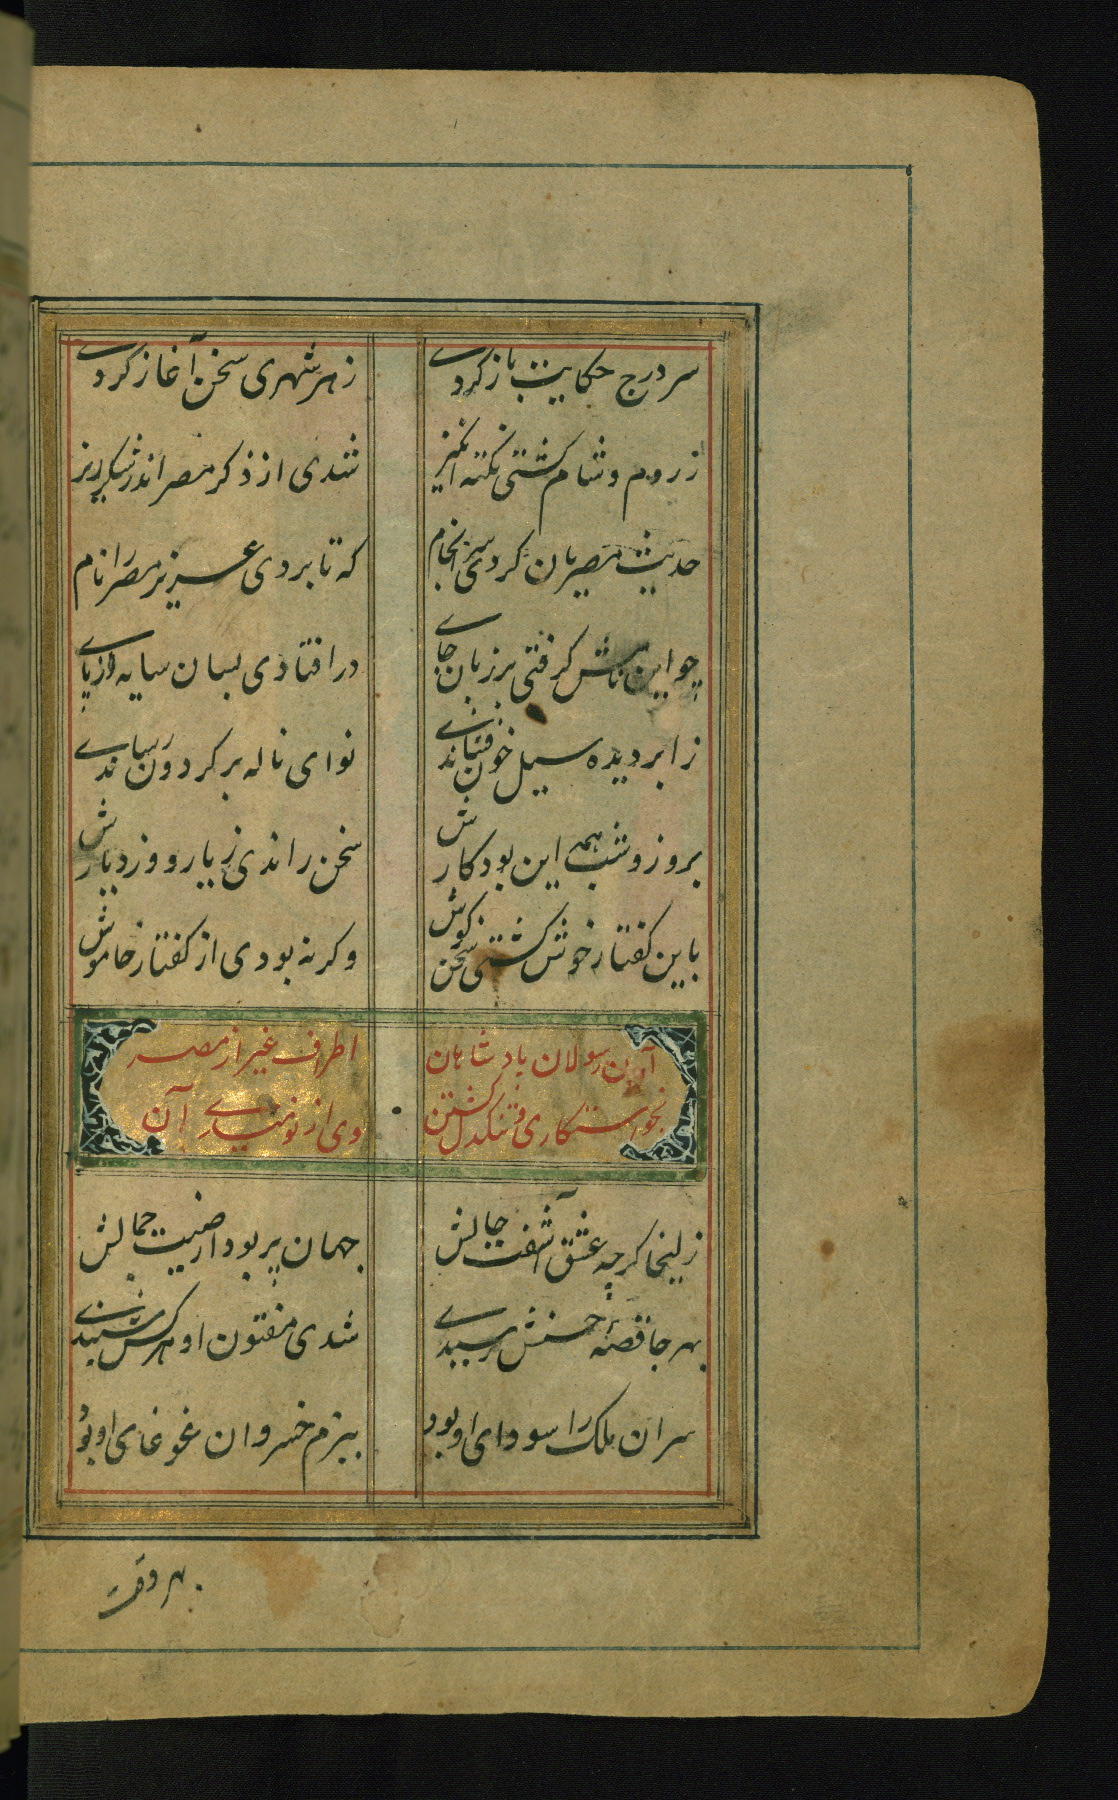 سر درج حکایت باز کردی زهر شهری سخن آغاز کردی
ز روم و شام کشتی نکته انگیز شدی از ذکر مصر اندر شکرریز
حدیث مصریان کردی سرانجام که تا بردی عزیز مصر را نام
چو این نامش کرفتی بر زبان جای در افتادی بسان سایه از پای
ز ابر دیده سیل خون فشاندی نوای ناله بر کردون رساندی
بروز و شب همه این بود کارش سخن راندی ز یار و وز دیارش
باین کفتار خوش کشتی سخن کوش وکرنه بودی از کفتار خاموش
آمدن رسولان پادشاهان اطراف غیر از مصر
بخواستکاری و تنکدل کشتن وی از نومیدی آن
زلیخا کرچه عشق آشفت حالش جهان پر بود از صیت جمالش
بهر جا قصهٔ حسنش رسیدی شدی مفتون او هر کس شنیدی
سران ملک را سودای او بود ببزم خسروان غوغای او بود
بهر وقت